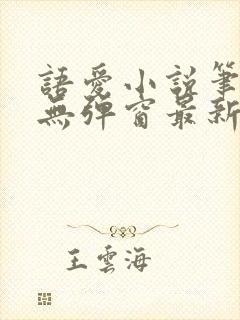 語愛小說筆
無彈窗最新
王雲海